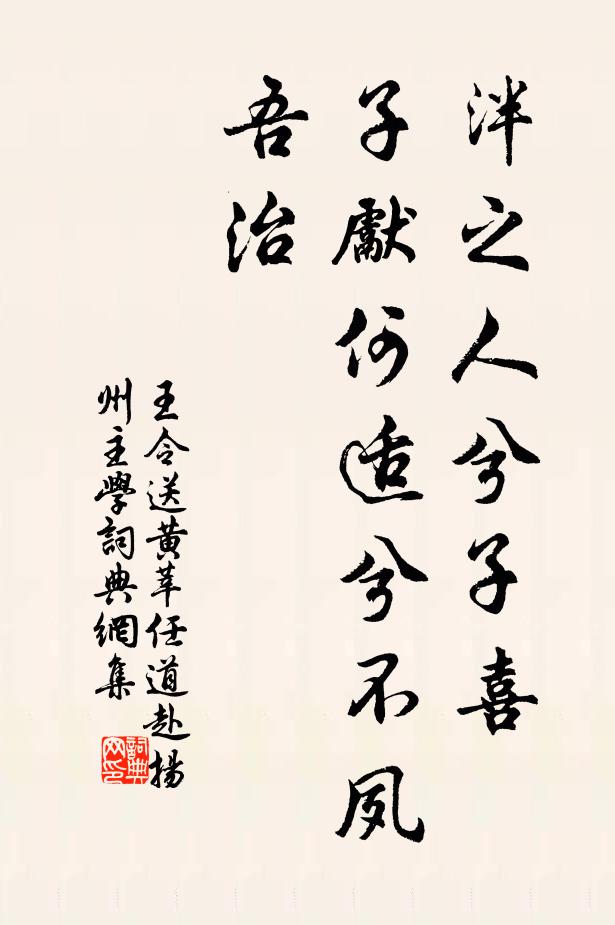 泮之人兮子喜
子獻何适兮不夙
吾治
王令送黃莘任道赴揚
州主學詞典網集
詞典網印